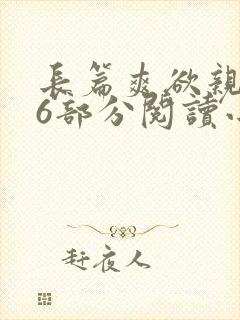 長篇爽欲親
6部分閱讀小
赶夜人